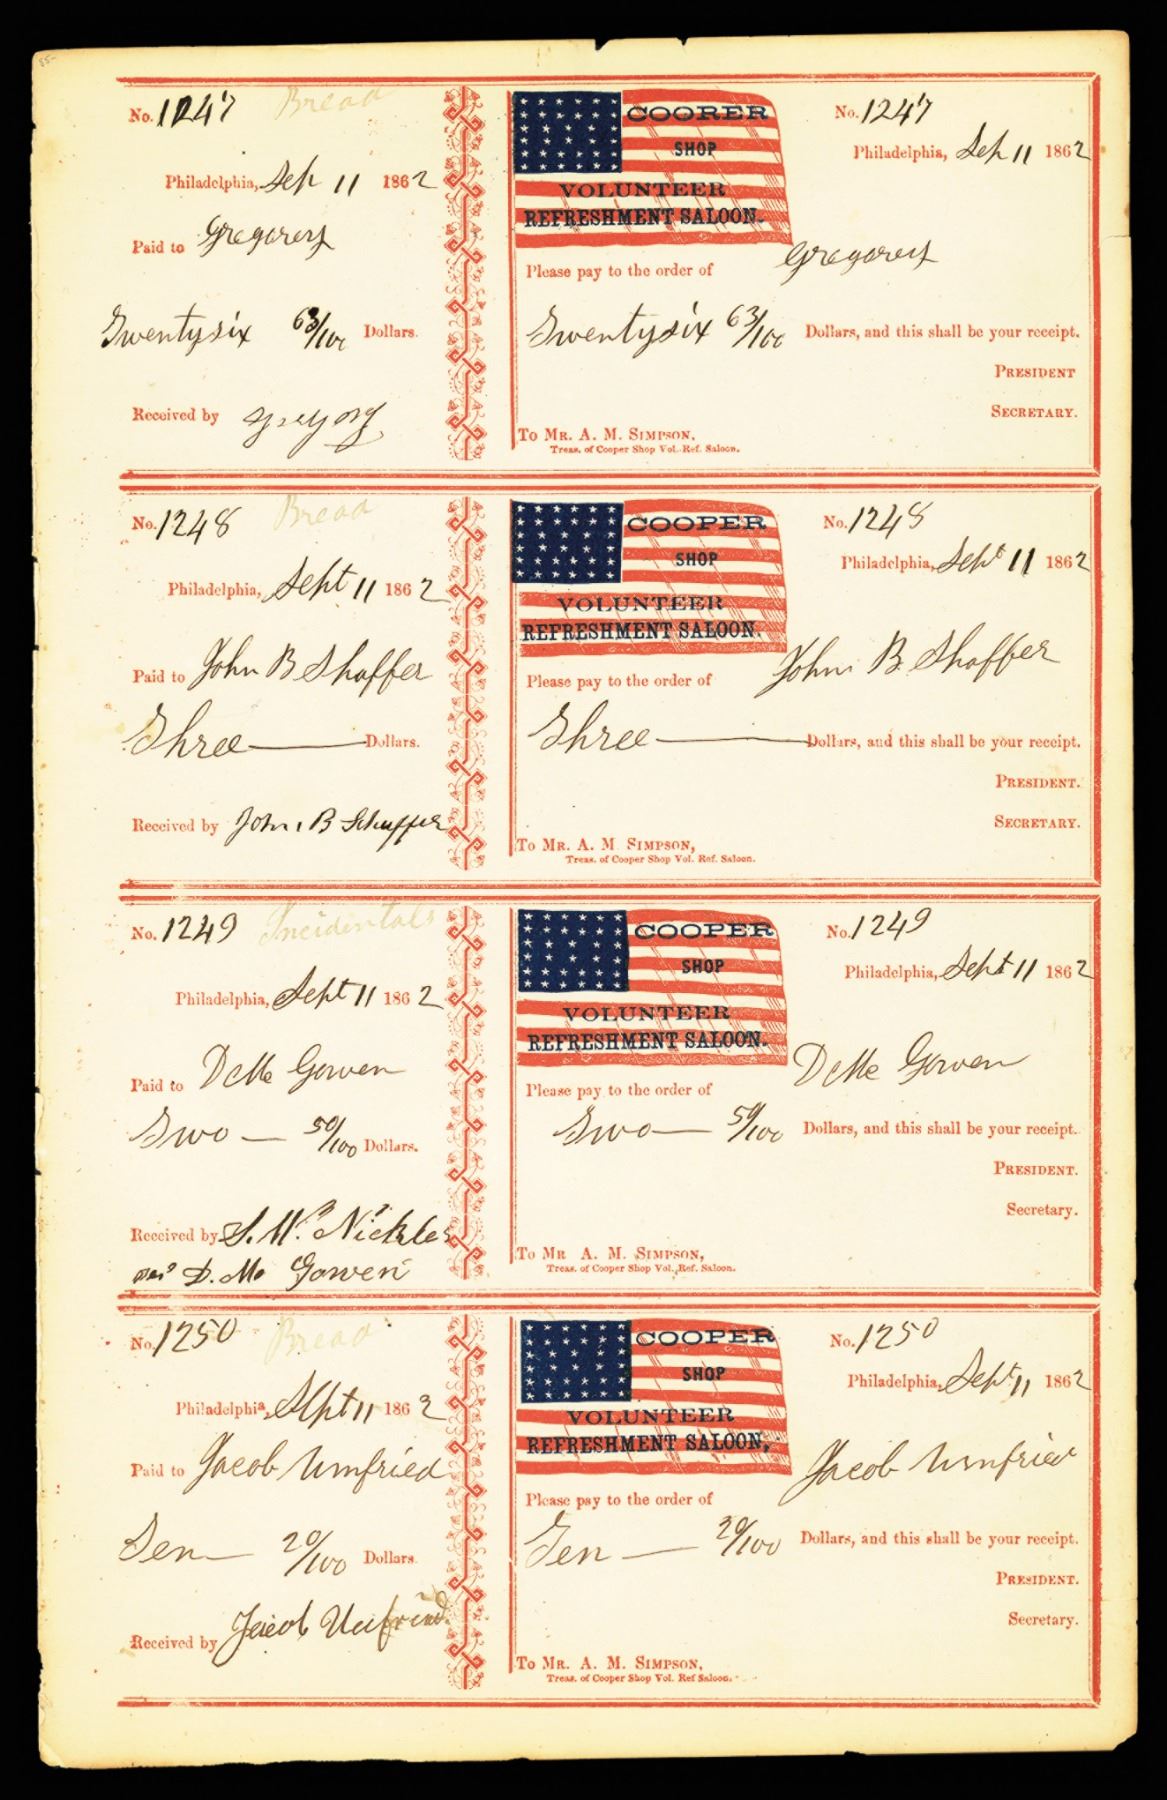 No. 1247 Bread
Philadelphia, Sep 11 1862
Paid to Gregorery
Twentysix 63/100 Dollars.
Received by Gregory
COOPER
SHOP
VOLUNTEER
REFRESHMENT SALOON.
No. 1247
Philadelphia, Sep 11 1862
Please pay to the order of Gregorery
Twentysix 63/100 Dollars, and this shall be your receipt.
PRESIDENT
SECRETARY.
To MR. A. M. SIMPSON,
Treas. of Cooper Shop Vol. Ref. Saloon.
No. 1248 Bread
Philadelphia, Sept 11 1862
Paid to John B Shaffer
Three Dollars.
Received by John B Schaffer
COOPER
SHOP
VOLUNTEER
REFRESHMENT SALOON.
No. 1248
Philadelphia, Sept 11 1862
Please pay to the order of John B. Shaffer
Three Dollars, and this shall be your receipt.
PRESIDENT.
SECRETARY.
To MR. A. M. SIMPSON,
Treas. of Cooper Shop Vol. Ref. Saloon.
No. 1249 Incidentals
Philadelphia, Sept 11 1862
Paid to Gowen
Two — 50/100 Dollars.
Received by Nickles
D. Mc Gowen
COOPER
SHOP
VOLUNTEER
REFRESHMENT SALOON.
No. 1249
Philadelphia, Sept 11 1862
Please pay to the order of Gowen
Two — 50/100 Dollars, and this shall be your receipt.
PRESIDENT.
Secretary.
To MR A. M. SIMPSON,
Treas. of Cooper Shop Vol. Ref. Saloon.
No. 1250 Bread
Philadelphia, Sept 11 1862
Paid to Jacob Umfried
Ten — 20/100 Dollars
Received by Jacob
COOPER
SHOP
VOLUNTEER
REFRESHMENT SALOON,
No. 1250
Philadelphia, Sept 11 1862
Please pay to the order of Jacob Umfried
Ten — 20/100 Dollars, and this shall be your receipt.
PRESIDENT.
Secretary.
To MR. A. M. SIMPSON,
Treas. of Cooper Shop Vol. Ref Saloon.